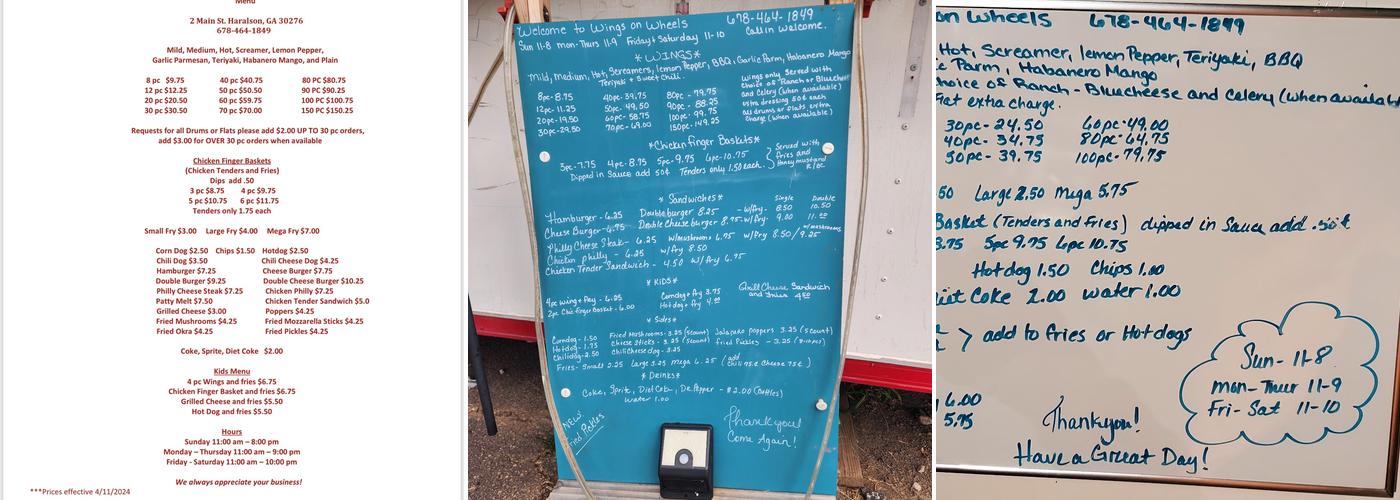 Menu
2 Main St. Haralson, GA 30276
678-464-1849
Mild, Medium, Hot, Screamer, Lemon Pepper,
Garlic Parmesan, Teriyaki, Habanero Mango, and Plain
8 pc $9.75 40 pc $40.75 80 PC $80.75
12 pc $12.25 50 pc $50.50 90 PC $90.25
20 pc $20.50 60 pc $59.75 100 PC $100.75
30 pc $30.50 70 pc $70.00 150 PC $150.25
Requests for all Drums or Flats please add $2.00 UP TO 30 pc orders,
add $3.00 for OVER 30 pc orders when available
Chicken Finger Baskets
(Chicken Tenders and Fries)
Dips add .50
3 pc $8.75 4 pc $9.75
5 pc $10.75 6 pc $11.75
Tenders only 1.75 each
Small Fry $3.00 Large Fry $4.00 Mega Fry $7.00
Corn Dog $2.50 Chips $1.50 Hotdog $2.50
Chili Dog $3.50 Chili Cheese Dog $4.25
Hamburger $7.25 Cheese Burger $7.75
Double Burger $9.25 Double Cheese Burger $10.25
Philly Cheese Steak $7.25 Chicken Philly $7.25
Patty Melt $7.50 Chicken Tender Sandwich $5.0
Grilled Cheese $3.00 Poppers $4.25
Fried Mushrooms $4.25 Fried Mozzarella Sticks $4.25
Fried Okra $4.25 Fried Pickles $4.25
Coke, Sprite, Diet Coke $2.00
Kids Menu
4 pc Wings and fries $6.75
Chicken Finger Basket and fries $6.75
Grilled Cheese and fries $5.50
Hot Dog and fries $5.50
Hours
Sunday 11:00 am – 8:00 pm
Monday – Thursday 11:00 am – 9:00 pm
Friday - Saturday 11:00 am – 10:00 pm
We always appreciate your business!
***Prices effective 4/11/2024
Welcome to Wings on Wheels 678-464-1849
Sun 11-8 mon-Thurs 11-9 Friday & Saturday 11-10 Call in welcome.
* WINGS *
Mild, Medium, Hot, Screamers, lemon Pepper, BBQ, Garlic Parm, Habanero Mango
Teriyaki & Sweet Chili.
8pc-8.75 40pc-39.75 80pc - 79.75
12pc-11.25 50pc-49.50 90pc - 88.25
20pc-19.50 60pc - 58.75 100pc - 99.75
30pc-29.50 70pc - 69.00 150pc-149.25
Wings only Served with
choice of Ranch or Bluecheese
and Celery (when available)
extra dressing 50¢ each
all drums or flats extra
charge (when available)
*Chicken Finger Baskets*
3pc-7.75 4pc-8.75 5pc-9.75 6pc-10.75
Dipped in Sauce add 50¢ Tenders only 1.50 each.
Served with
fries and
Honey mustard
* Sandwiches *
Single Double
Hamburger - 6.25 Double burger 8.25 - w/fry- 8.50 10.50
Cheese Burger-6.75 Double Cheese burger 8.75-w/fry- 9.00 11.00
Philly Cheese Steak - 6.25 w/mushrooms 6.75 w/fry 8.50/9.25 w/mushrooms
Chicken philly - 6.25 w/fry 8.50
Chicken Tender Sandwich - 4.50 w/fry 6.75
* KIDS *
4pc wing & fry - 6.25 Corndog & fry 3.75 Grill Cheese Sandwich
2pc Chic finger basket - 6.00 Hotdog & fry 4.00 and fries 4.50
* Sides *
Corndog - 1.50 Fried Mushrooms - 3.25 (5count) Jalapeño poppers 3.25 (5count)
Hotdog - 1.75 Cheese Sticks - 3.25 (5count) fried Pickles - 3.25
Chilidog-2.50 Chili Cheese dog - 3.25
Fries - Small 2.25 Large 3.25 mega 6.25 (add Chili 75¢ Cheese 75¢)
* Drinks *
Coke, Sprite, Diet Coke, Dr. Pepper - $2.00 (bottles)
Water 1.00
NEW
Fried Pickles
Thank you!
Come Again!
on Wheels 678-464-1849
Hot, Screamer, lemon Pepper, Teriyaki, BBQ
c Parm, Habanero Mango
hoice of Ranch - Bluecheese and Celery (when availab
Flat extra charge.
30pc - 24.50 60pc - 49.00
40pc - 34.75 80pc - 64.75
50pc - 39.75 100pc - 79.75
50 Large 2.50 Mega 5.75
Basket (Tenders and Fries) dipped in Sauce add .50¢
8.75 5pc 9.75 6pc 10.75
Hotdog 1.50 Chips 1.00
iet Coke 2.00 water 1.00
> add to fries or Hotdogs
6.00
5.75
Sun- 11-8
mon- Thur 11-9
Fri- Sat 11-10
Thankyou!
Have a Great Day!